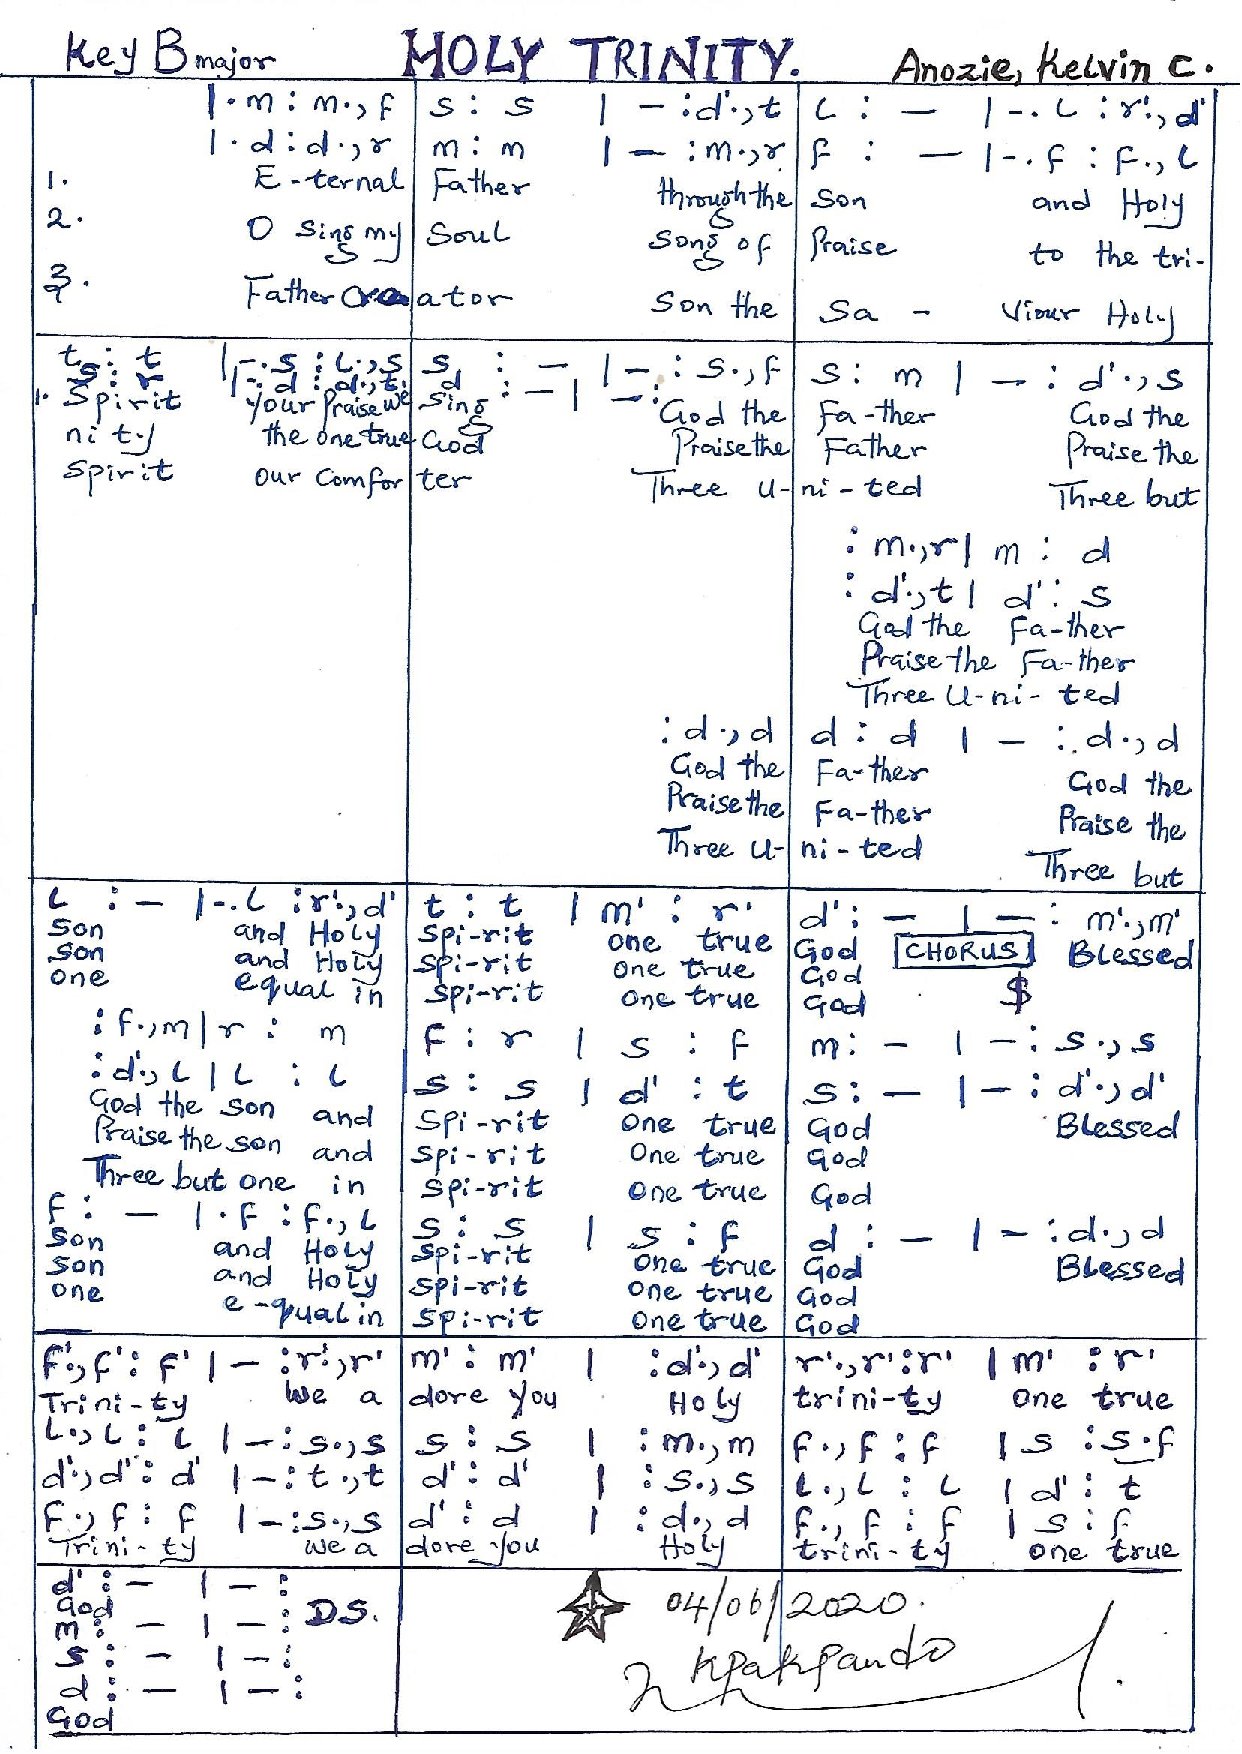 Key B major HOLY TRINITY. Anozie, Kelvin C.
|. m : m ., f | s : s | — : d' ., t | l : — | —. l : r' ., d'
|. d : d ., r | m : m | — : m ., r | f : — | —. f : f ., l
1. E-ternal Father through the Son and Holy
2. O Sing my Soul Song of Praise to the tri-
3. Father Creator Son the Sa - viour Holy
t : t | —. s : l ., s | s : — | — : s ., f | s : m | — : d' ., s
s : r | —. d : d ., t, | d : — | — :
1. Spirit your Praise we sing God the Fa-ther God the
nity the one true God Praise the Father Praise the
Spirit our Comforter Three U-ni-ted Three but
: m ., r | m : d
: d' ., t | d' : s
God the Fa-ther
Praise the Fa-ther
Three U-ni-ted
: d ., d | d : d | — : d ., d
God the Fa-ther God the
Praise the Fa-ther Praise the
Three U-ni-ted Three but
l : — | —. l : r' ., d' | t : t | m' : r' | d' : — | — : m' ., m'
Son and Holy Spi-rit One true God CHORUS Blessed
Son and Holy Spi-rit One true God
One equal in Spi-rit One true God $
: f ., m | r : m | f : r | s : f | m : — | — : s ., s
: d' ., l | l : l | s : s | d' : t | s : — | — : d' ., d'
God the Son and Spi-rit One true God Blessed
Praise the Son and Spi-rit One true God
Three but one in Spi-rit One true God
f : — | . f : f ., l | s : s | s : f | d : — | — : d ., d
Son and Holy Spi-rit One true God Blessed
Son and Holy Spi-rit One true God
One e-qual in Spi-rit One true God
f' ., f' : f' | — : r' ., r' | m' : m' | : d' ., d' | r' ., r' : r' | m' : r'
Trini-ty We a dore you Holy trini-ty One true
l ., l : l | — : s ., s | s : s | : m ., m | f ., f : f | s : s . f
d' ., d' : d' | — : t ., t | d' : d' | : s ., s | l ., l : l | d' : t
f ., f : f | — : s ., s | d' : d | : d ., d | f ., f : f | s : f
Trini-ty we a dore you Holy trini-ty One true
d' : — | — :
God DS. 04/06/2020.
m : — | — :
s : — | — : Kpakpando
d : — | — :
God